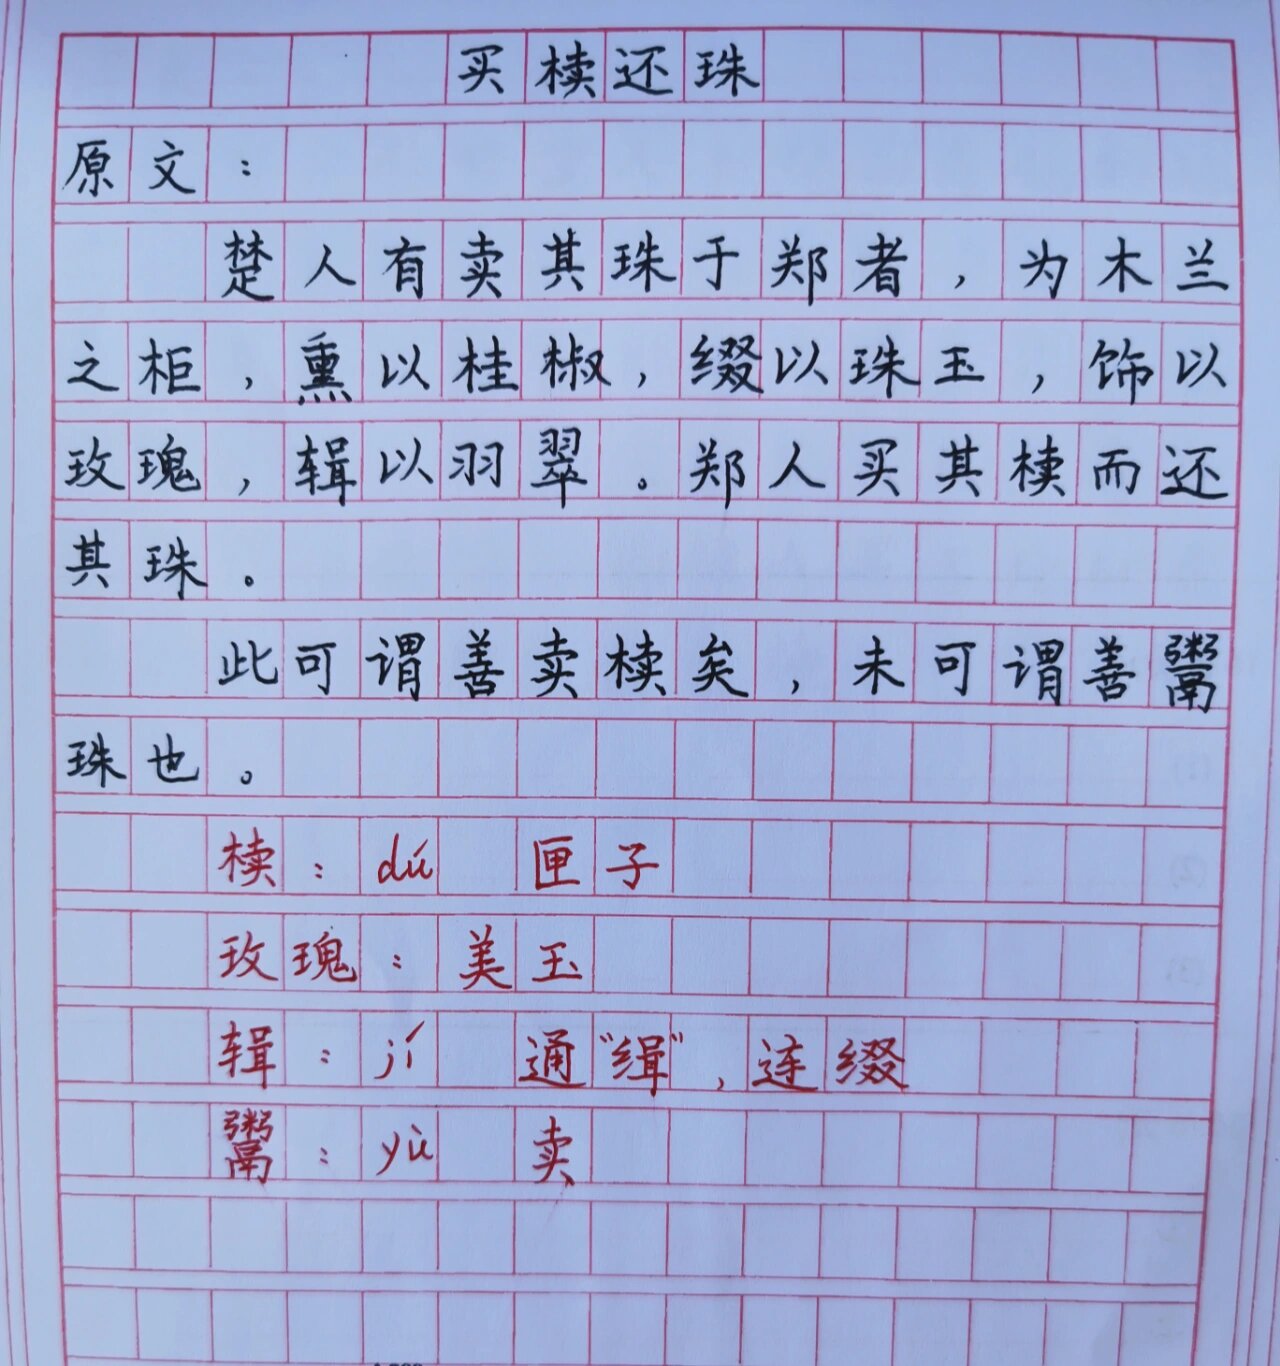 买椟还珠
原文：
楚人有卖其珠于郑者，为木兰
之柜，熏以桂椒，缀以珠玉，饰以
玫瑰，辑以羽翠。郑人买其椟而还
其珠。
此可谓善卖椟矣，未可谓善鬻
珠也。
椟：dú 匣子
玫瑰：美玉
辑：jí 通“缉”，连缀
鬻：yù 卖